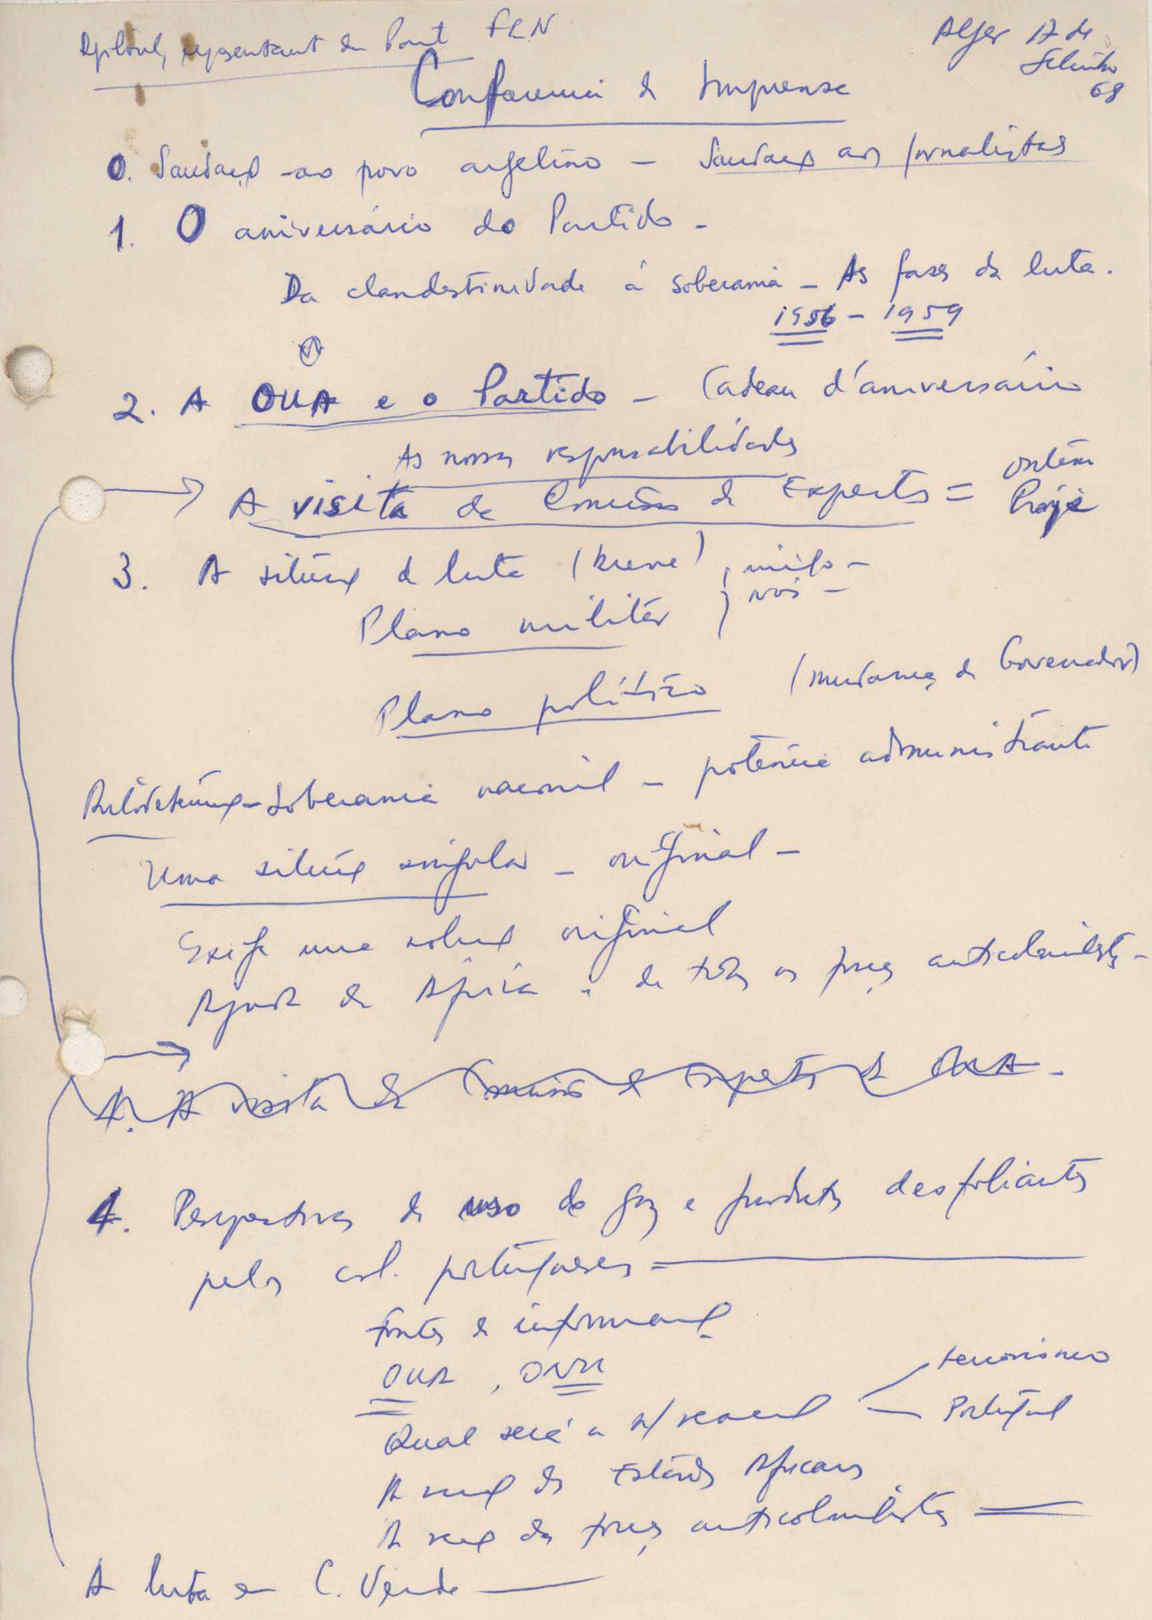 représentant du Parti FLN
Alger
68
Conferencia de Imprensa
0. Saudaçã ao povo argelino – Saudaçã aos jornalistas
1. O aniversário do Partido –
Da clandestinidade à soberania – As fases da luta.
1956 – 1959
2. A OUA e o Partido – Cadeau d'aniversário
As nossas responsabilidades
A visita da Comissão de Experts =
3. A situação da luta (breve)
nós –
Plano militar
Plano político (mudança de Governador)
soberania nacional – potência administrante
Uma situação singular – original –
Exige uma solução original
Ajuda da África e de todas as forças anticolonialistas –
4. A visita da Comissão de Experts da OUA –
4. Perspectivas do uso do gaz e produtos desfoliantes
pelos col. portugueses –
Fontes de informação
OUA, ONU
Qual será a n/ reacção
terrorismo
Portugal
A reacç dos Estados Africanos
A reacç das forças anticolonialistas
A luta em C. Verde